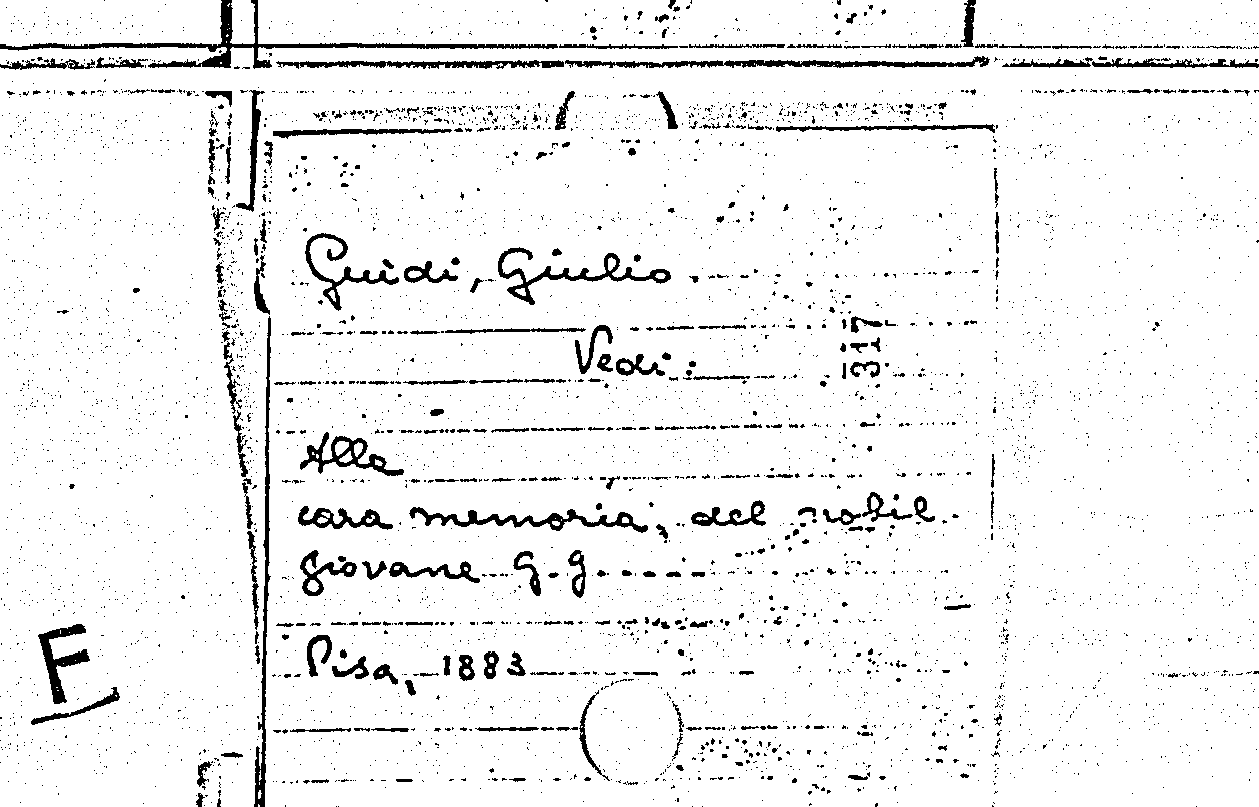 Guidi, Giulio.
Vedi:
317
Alla
cara memoria, del nobil
giovane G. G.....
Pisa, 1883
F